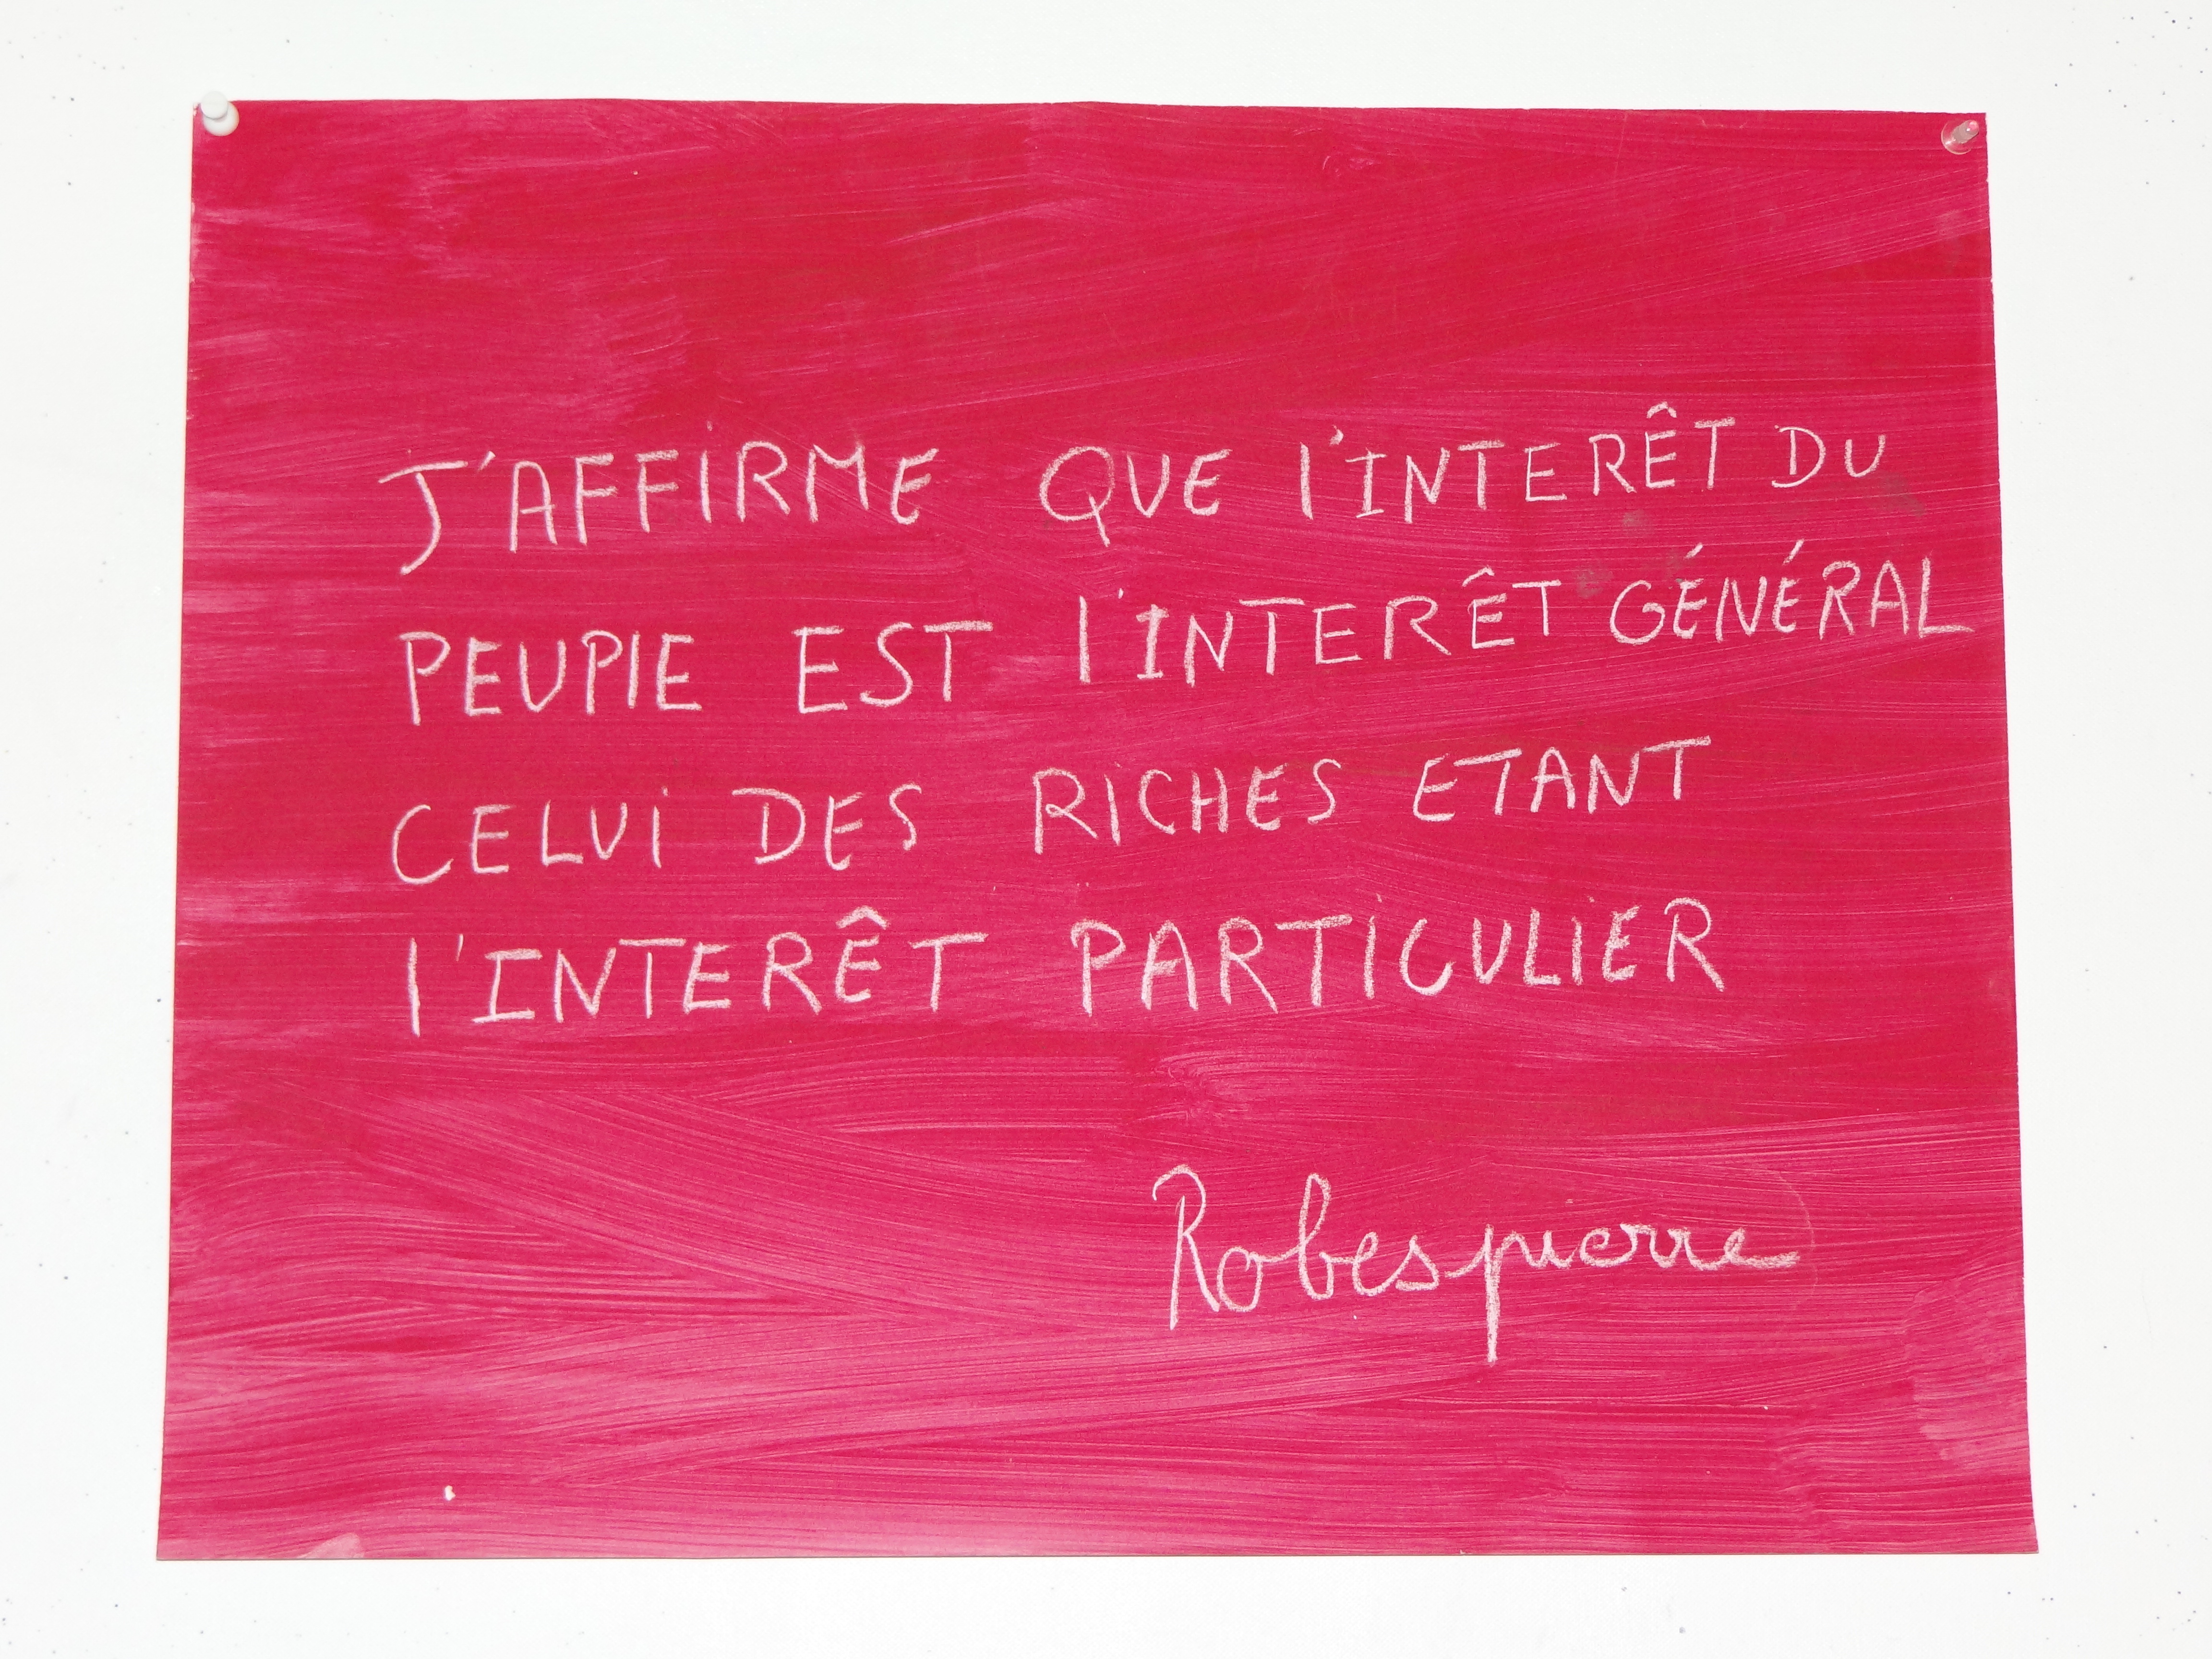 J'AFFIRME QUE l'INTERÊT DU
PEUPlE EST l'INTERÊT GÉNÉRAL
CELUI DES RICHES ETANT
l'INTERÊT PARTICULIER
Robespierre